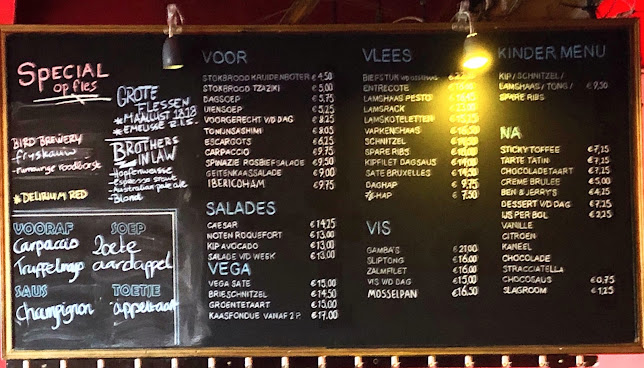 SPECIAL
op fles
BIRD BREWERY
GROTE
FLESSEN
BROTHERS
IN LAW
Hopfenweisse
Espresso stout
Australian pale ale
Blond
DELIRIUM RED
VOORAF
Carpaccio
Truffelmayo
SOEP
Zoete
aardappel
SAUS
Champignon
TOETJE
appeltaart
VOOR
STOKBROOD KRUIDENBOTER €4,50
STOKBROOD TZAZIKI €5,00
DAGSOEP €5,75
UIENSOEP €5,25
VOORGERECHT V/D DAG €8,25
TONIJNSASHIMI €9,00
ESCARGOTS €6,25
CARPACCIO €9,75
SPINAZIE ROSBIEFSALADE €9,50
GEITENKAASSALADE €9,00
IBERICOHAM €9,75
SALADES
CAESAR €14,25
NOTEN ROQUEFORT €13,00
KIP AVOCADO €13,00
SALADE V/D WEEK €13,00
VEGA
VEGA SATE €15,00
BRIESCHNITZEL €14,50
GROENTETAART €15,00
KAASFONDUE VANAF 2 P. €17,00
VLEES
BIEFSTUK
ENTRECOTE
LAMSHAAS PESTO
LAMSRACK
LAMSKOTELETTEN
VARKENSHAAS
SCHNITZEL
SPARE RIBS
KIPFILET DAGSAUS
SATE BRUXELLES
DAGHAP € 9,75
HAP € 7,50
VIS
GAMBA'S €21,00
SLIPTONG €16,00
ZALMFILET €16,00
VIS V/D DAG €15,00
MOSSELPAN €16,50
KINDER MENU
KIP / SCHNITZEL /
LAMSHAAS / TONG / €9,50
SPARE RIBS
NA
STICKY TOFFEE €7,15
TARTE TATIN €7,15
CHOCOLADETAART €7,15
CREME BRULEE €5,00
BEN & JERRY'S €4,15
DESSERT V/D DAG €7,15
IJS PER BOL €2,25
VANILLE
CITROEN
KANEEL
CHOCOLADE
STRACCIATELLA
CHOCOSAUS €0,75
SLAGROOM €1,25